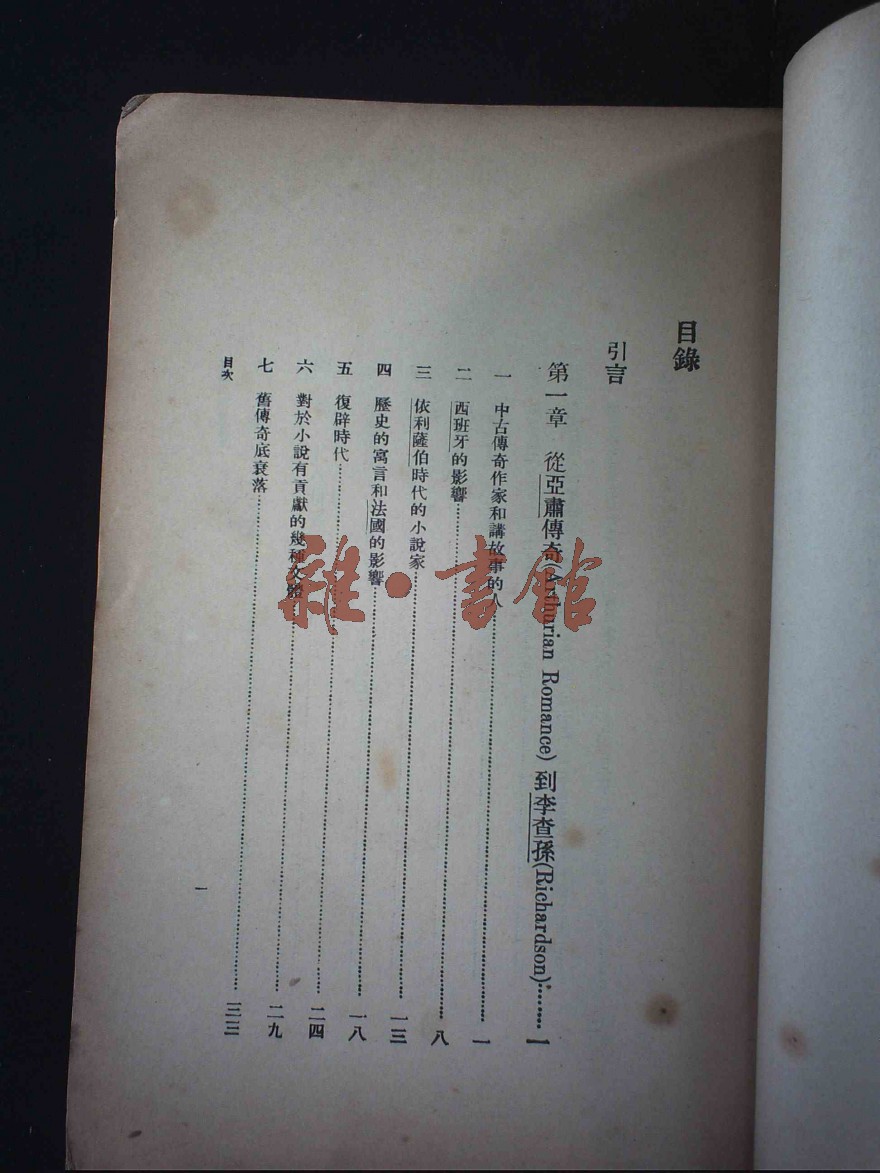 目錄
引言
第一章　從亞肅傳奇(Arthurian Romance)到李查孫(Richardson)………一
一　中古傳奇作家和講故事的人………一
二　西班牙的影響………八
三　依利薩伯時代的小說家………一三
四　歷史的寓言和法國的影響………一八
五　復辟時代………二四
六　對於小說有貢獻的幾種文體………二九
七　舊傳奇底衰落………三三
目次
一
雜·書館